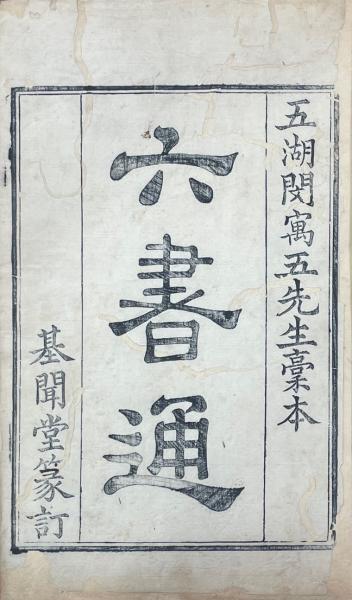 五湖閔寓五先生稾本
六書通
基聞堂篆訂